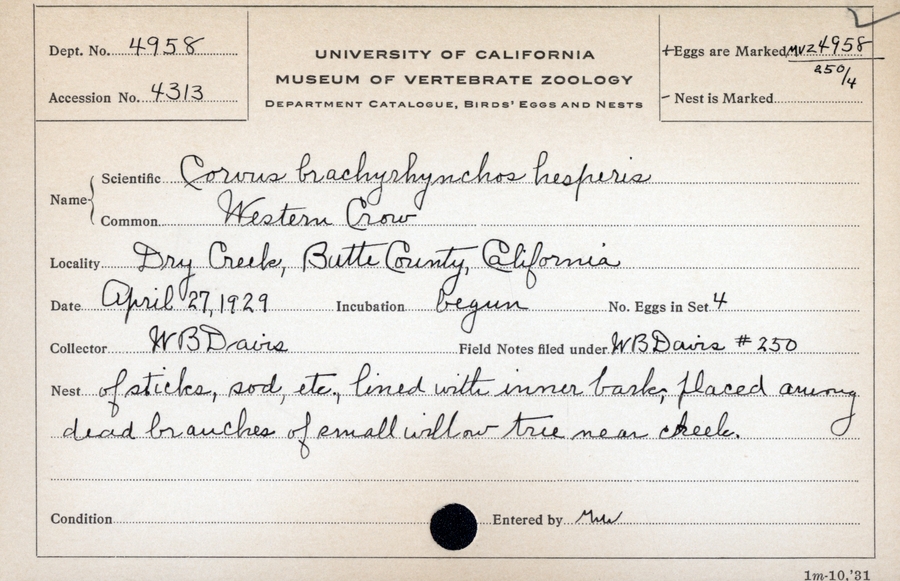 Dept. No. 4958
Accession No. 4313
UNIVERSITY OF CALIFORNIA
MUSEUM OF VERTEBRATE ZOOLOGY
DEPARTMENT CATALOGUE, BIRDS' EGGS AND NESTS
+Eggs are Marked MVZ 4958
250/4
- Nest is Marked
Name
Scientific Corvus brachyrhynchos hesperis
Common Western Crow
Locality Dry Creek, Butte County, California
Date April 27, 1929 Incubation begun No. Eggs in Set 4
Collector WB Davis Field Notes filed under WB Davis # 250
Nest of sticks, sod, etc., lined with inner bark; placed among
dead branches of small willow tree near creek.
Condition Entered by
1m-10,'31